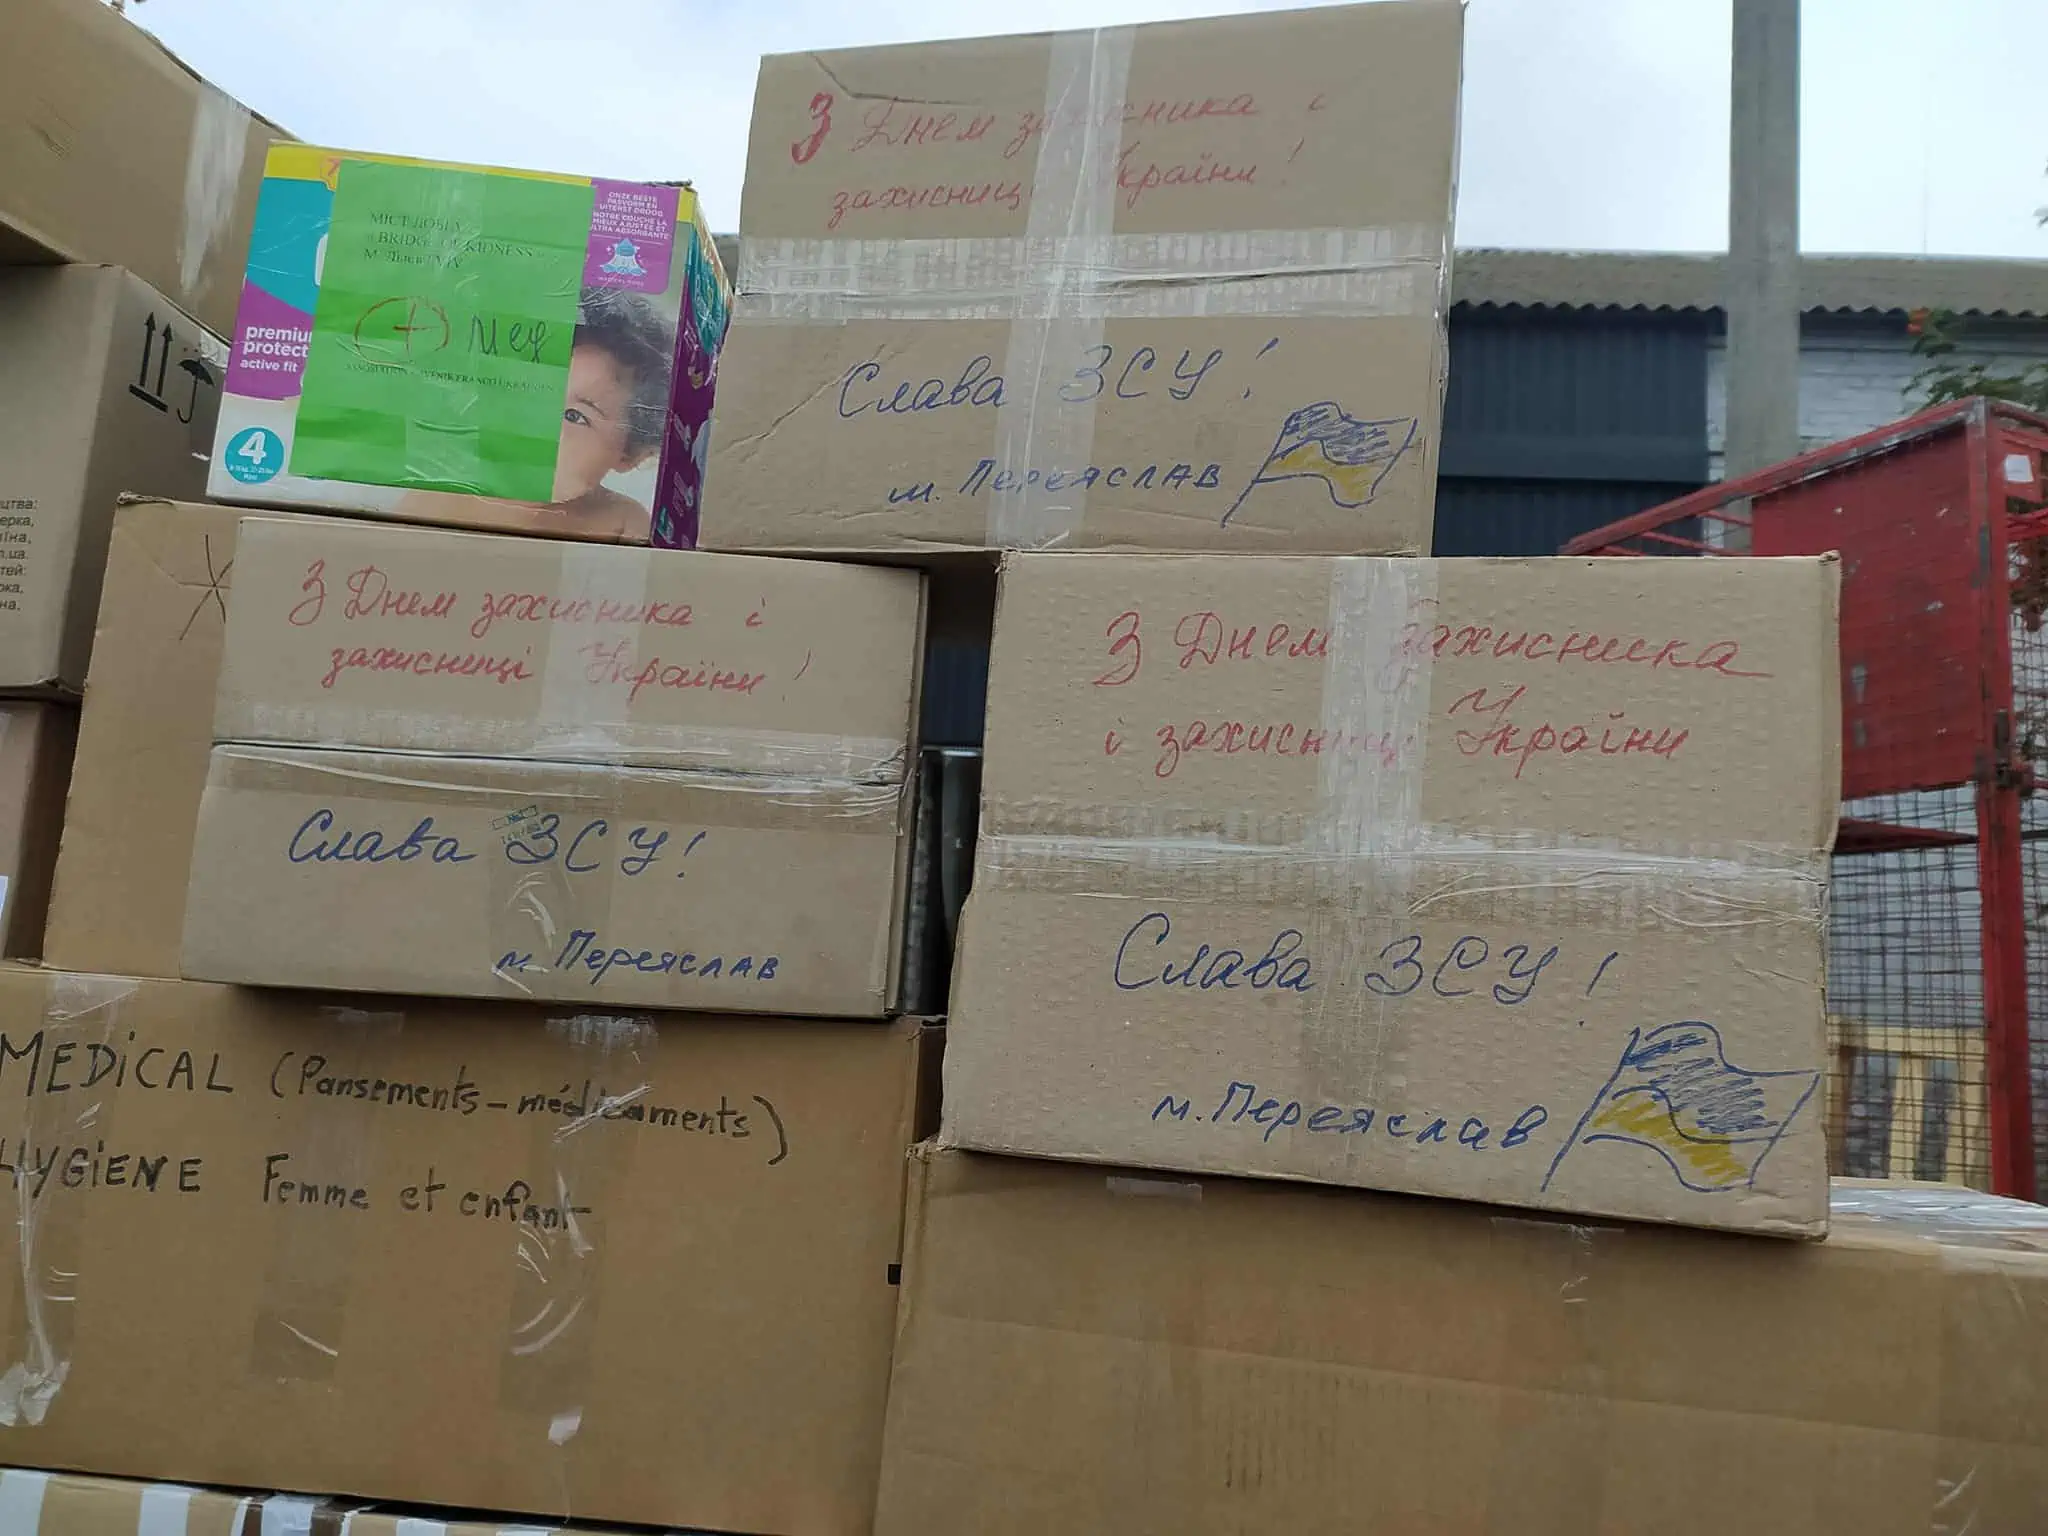 З Днем захисника і
захисниці України!
Слава ЗСУ!
м. Переяслав
ONZE BESTE
PASVORM EN
UITERST DROOG
NOTRE COUCHE LA
MIEUX AJUSTÉE ET
ULTRA ABSORBANTE
МІСТ ДОБРА
BRIDGE OF KIDNESS
Мед
premium
protect
active fit
4
цтва:
ерка,
їна,
n.ua.
тей:
рка,
на,
З Днем захисника і
захисниці України!
Слава ЗСУ!
м. Переяслав
З Днем захисника
і захисниці України
Слава ЗСУ!
м. Переяслав
MEDiCAL (Pansements - médicaments)
HYGiENE Femme et enfant